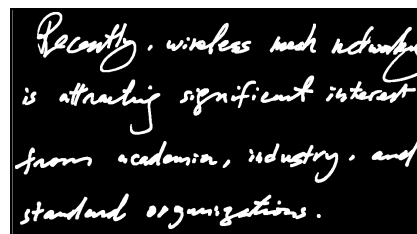 Recently, wireless mesh network
is attracting significant interest
from academia, industry, and
standard organizations.